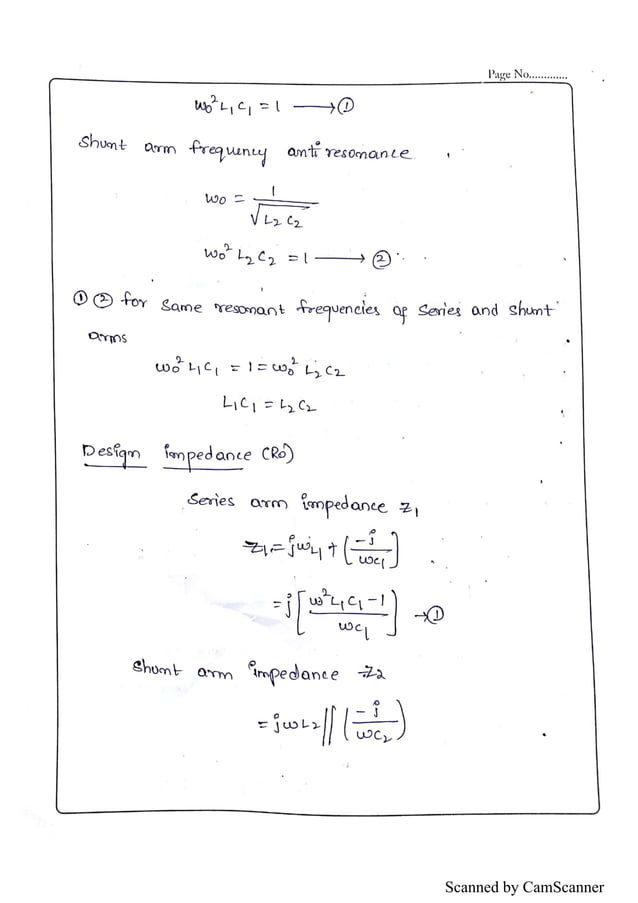 Page No.............
ω₀² L₁ C₁ = 1 ⟶ ①
Shunt arm frequency anti resonance
ω₀ = 1 / √(L₂ C₂)
ω₀² L₂ C₂ = 1 ⟶ ②
① ② for same resonant frequencies of series and shunt
arms
ω₀² L₁ C₁ = 1 = ω₀² L₂ C₂
L₁ C₁ = L₂ C₂
Design impedance (R₀)
Series arm impedance Z₁
Z₁ = jωL₁ + (-j / ωC₁)
= j [(ω² L₁ C₁ - 1) / ωC₁] → ①
Shunt arm impedance Z₂
= jωL₂ || (-j / ωC₂)
Scanned by CamScanner